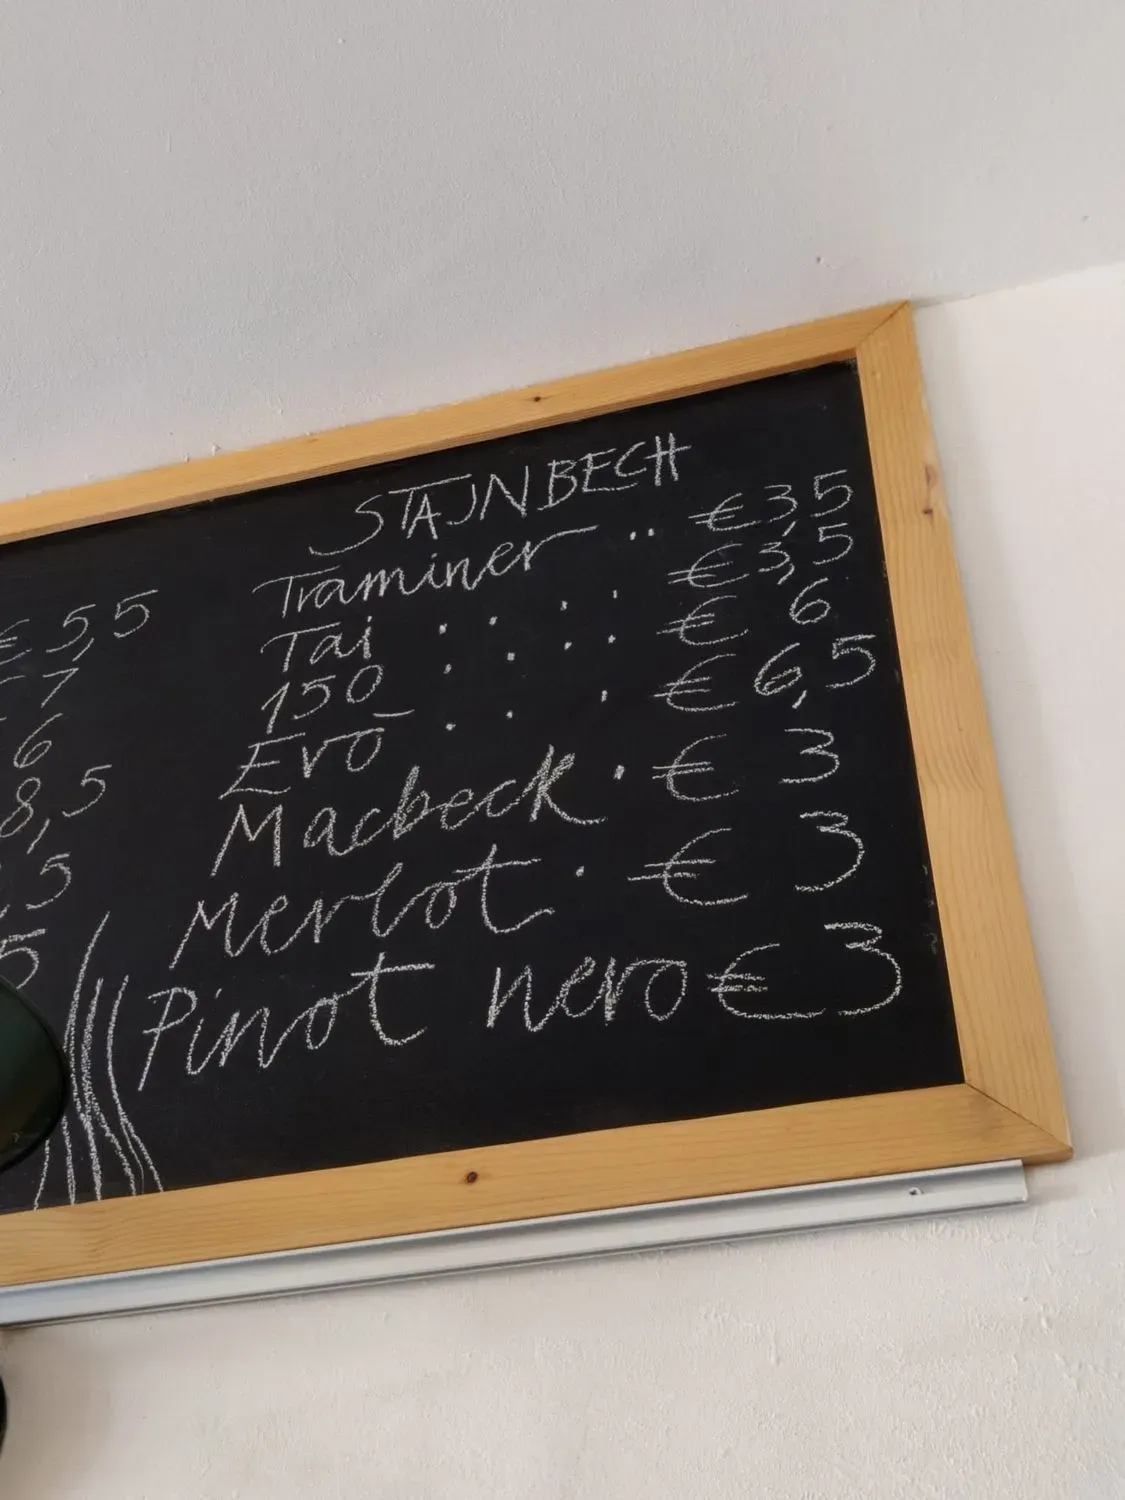 € 5,5
€ 7
6
8,5
,5
5
STAJNBECH
Traminer .. €3,5
Tai .... €3,5
150 .... € 6
Evō ... € 6,5
Macbeck . € 3
Merlot . € 3
Pinot nero € 3